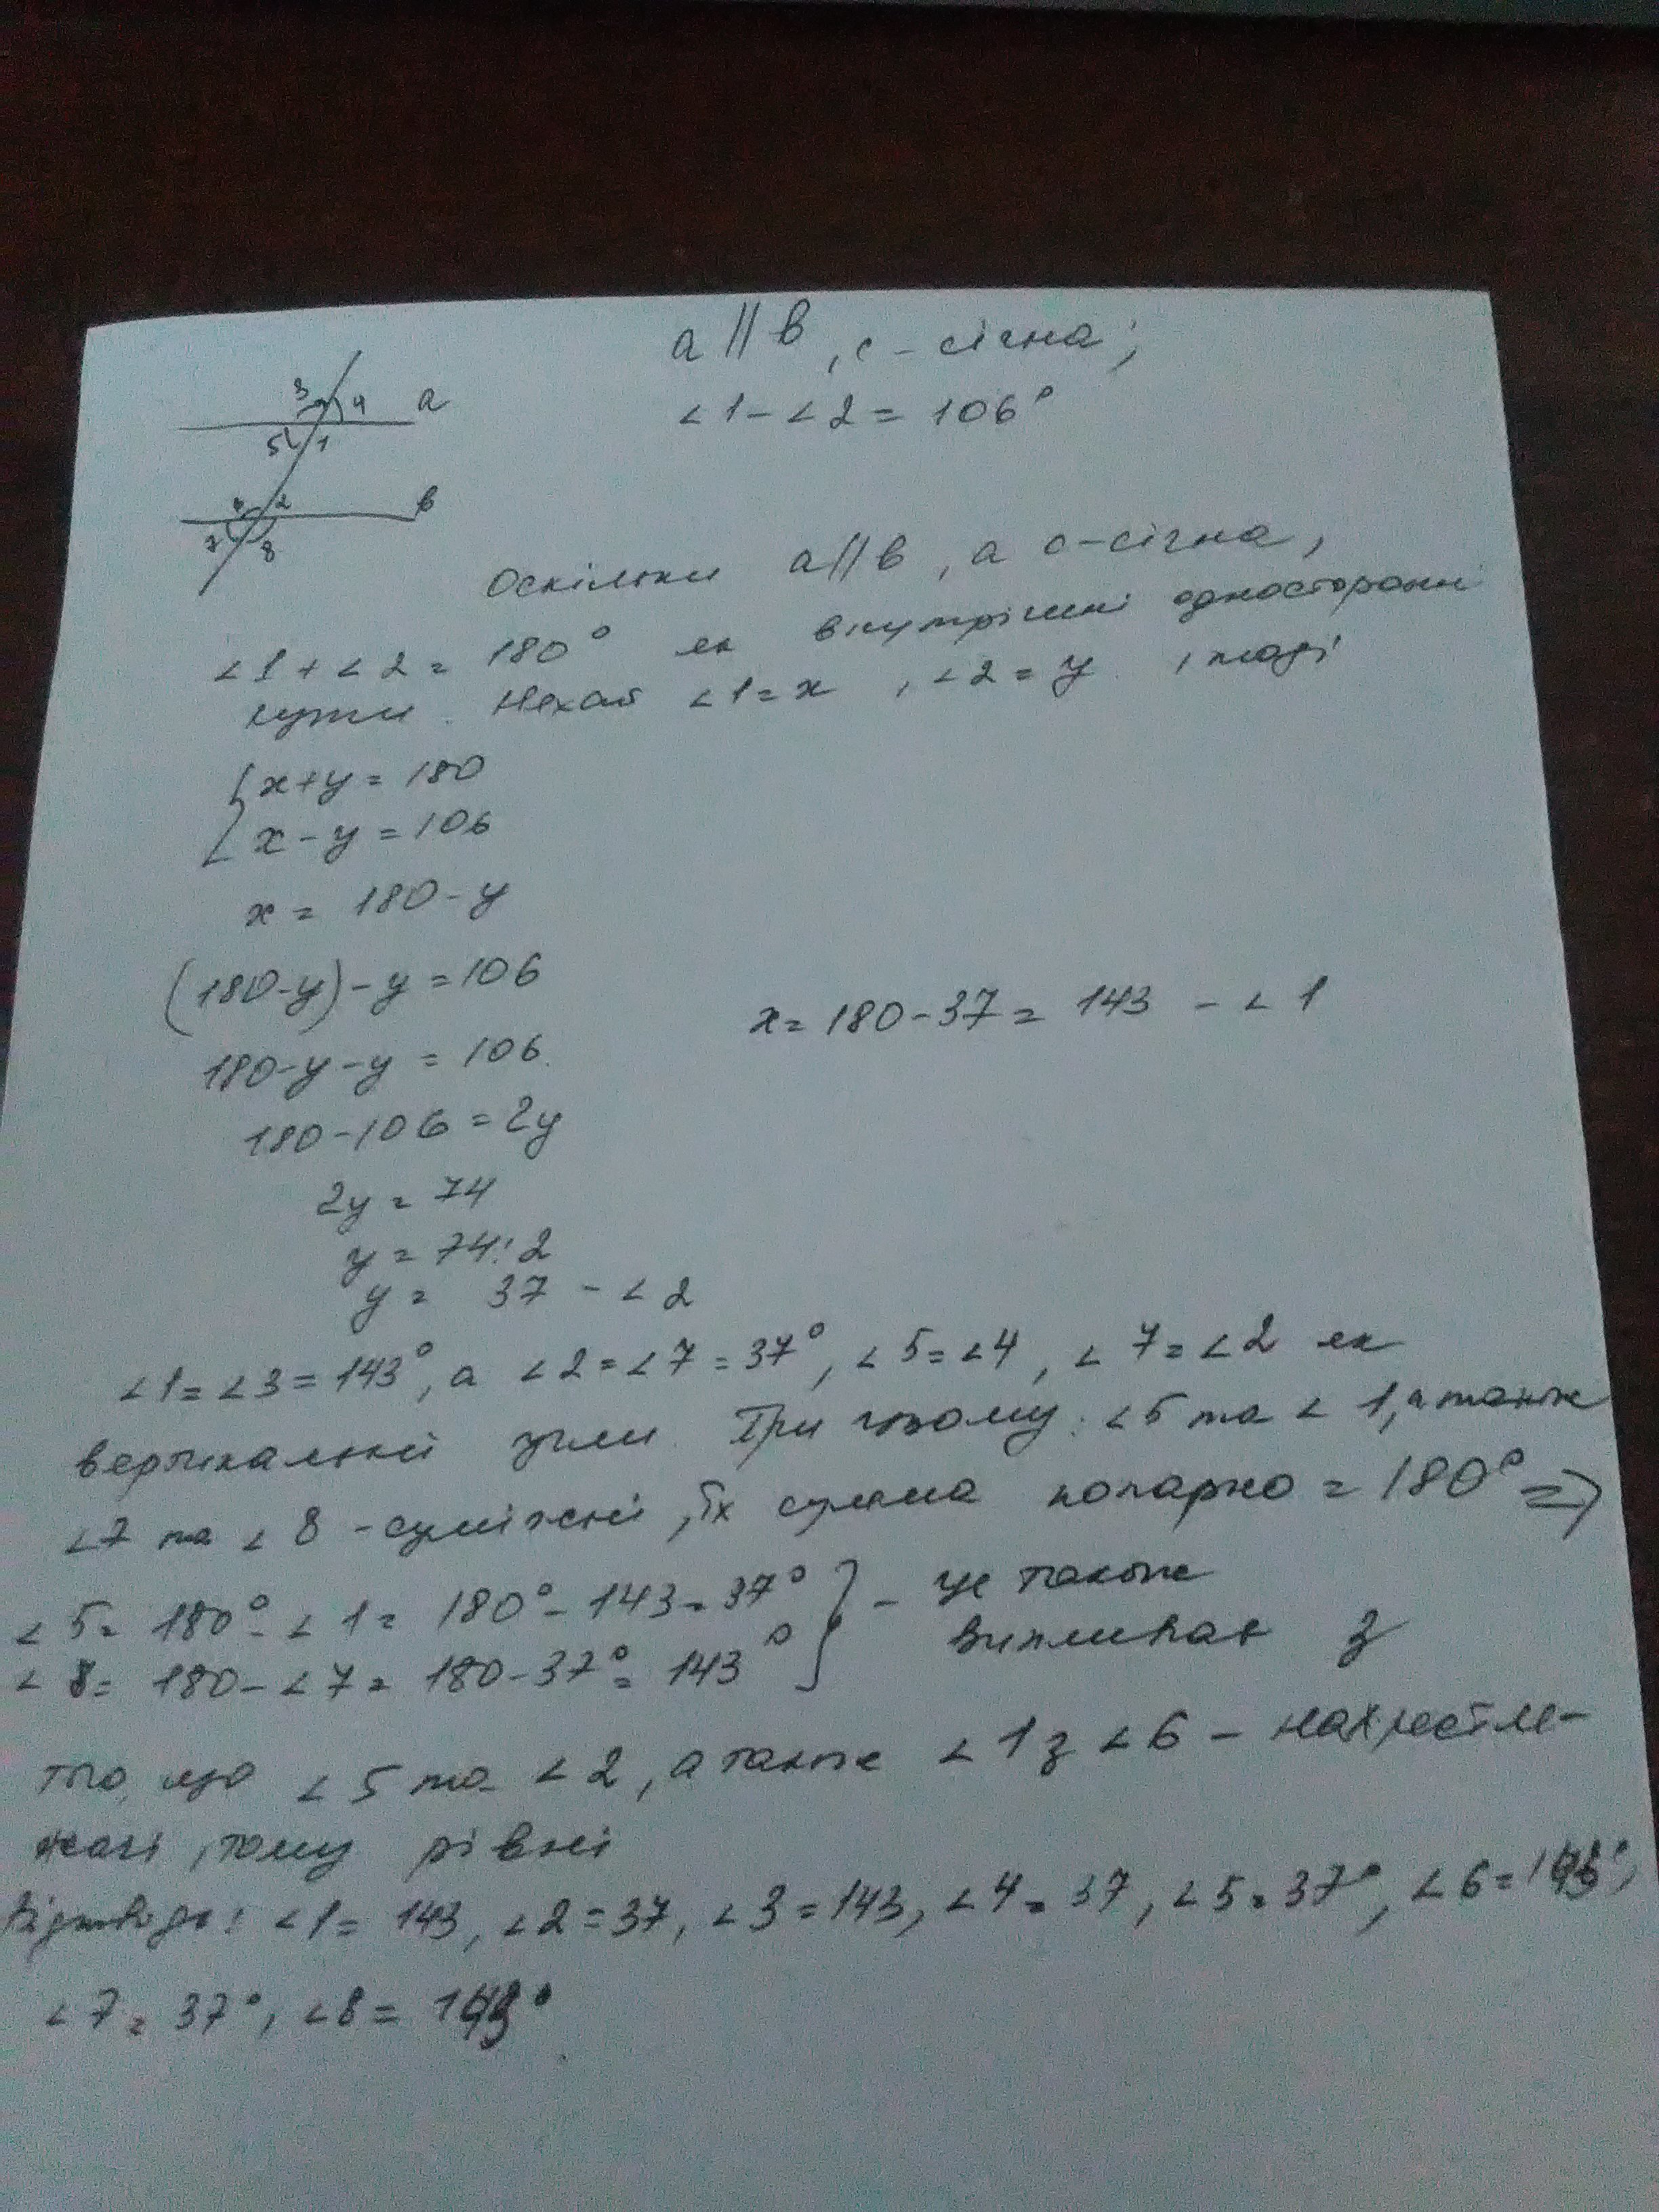 a || b, c - січна;
∠1 - ∠2 = 106°
3 4 a
5 1
2 b
7 8
Оскільки a || b, а c - січна,
∠1 + ∠2 = 180° як внутрішні односторонні
кути. Нехай ∠1 = x, ∠2 = y, тоді
{ x + y = 180
{ x - y = 106
x = 180 - y
(180 - y) - y = 106
180 - y - y = 106
180 - 106 = 2y
2y = 74
y = 74 : 2
y = 37 - ∠2
x = 180 - 37 = 143 - ∠1
∠1 = ∠3 = 143°, а ∠2 = ∠7 = 37°, ∠5 = ∠4, ∠7 = ∠2 як
вертикальні При цьому: ∠5 та ∠1, а також
∠7 та ∠8 - суміжні, їх сума попарно = 180° =>
∠5 = 180° - ∠1 = 180° - 143 = 37° } - це також
∠8 = 180 - ∠7 = 180 - 37° = 143° } випливає з
того, що ∠5 та ∠2, а також ∠1 з ∠6 - нахрестле-
жачі, тому рівні
Відповідь: ∠1 = 143, ∠2 = 37, ∠3 = 143, ∠4 = 37, ∠5 = 37°, ∠6 = 143°,
∠7 = 37°, ∠8 = 143°